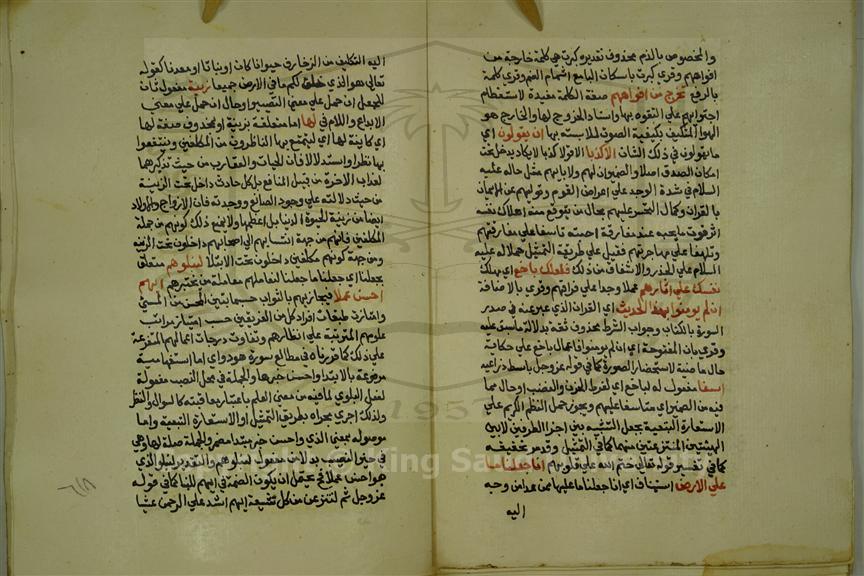 والمخصوص بالذم محذوف تقديره كبرت هي كلمة خارجة من
افواههم وقرئ كبرت باسكان الباء مع اشمام الضم وقرئ كلمة
بالرفع تخرج من افواههم صفة الكلمة مفيدة لاستعظام
اجترائهم على التفوه بها واسناد الخروج لها والخارج هو
الهوا المتكيف بكيفية الصوت لملابسته بها ان يقولون اي
ما يقولون في ذلك الشان الا كذبا الا قولا كذبا لا يكاد يدخل تحت
امكان الصدق اصلا والضميران لهم ولابائهم مثل حاله عليه
السلام في شدة الوجد على اعراض القوم وتوليهم عن الايمان
بالقران وكمال التحسر عليهم بحال من يتوقع منه اهلاك نفسه
اثر فوت ما يحبه عند مفارقة احبته تاسفا على مفارقتهم
وتلهفا على مهاجرتهم فقيل على طريقة التمثيل حملا له عليه
السلام على الحذر والاشفاق من ذلك فلعلك باخع اي مهلك
نفسك على اثارهم غما ووجدا على فراقهم وقرئ بالاضافة
ان لم يومنوا بهذا الحديث اي القران الذي عبر عنه في صدر
السورة بالكتاب وجواب الشرط محذوف ثقة بدلالة ما سبق عليه
وقرئ بان المفتوحة اي لان لم يومنوا فاعمال باخع على حكاية
حال ماضية لاستحضار الصورة كما في قوله عز وجل باسط ذراعيه
اسفا مفعول له لباخع اي لفرط الحزن والغضب او حال مما
فيه من الضمير اي متاسفا عليهم ويجوز حمل النظم الكريم على
الاستعارة التبعية بجعل التشبيه بين اجزا الطرفين لا بين
الهيئتين المنتزعتين منهما كما في التمثيل وقد مر تحقيقه
كما في تفسير قوله تعالى ختم الله على قلوبهم انا جعلنا ما
على الارض استيناف اي انا جعلنا ما عليها ممن عدا من وجه
اليه
اليه التكليف من الزخارف حيوانا كان او نباتا او معدنا كقوله
تعالى هو الذي خلق لكم ما في الارض جميعا زينة مفعول ثان
للجعل ان حمل على معنى التصيير او حال ان حمل على معنى
الابداع واللام في لها اما متعلقة بزينة او بمحذوف صفة لها
اي كاينة لها اي ليتمتع بها الناظرون من المكلفين وينتفعوا
بها نظرا واستدلالا فان الحيات والعقارب من حيث تذكيرهما
لعذاب الاخرة من قبيل المنافع بل كل حادث داخل تحت الزينة
من حيث دلالته على وجود الصانع ووحدته فان الازواج والاولاد
ايضا من زينة الحيوة الدنيا بل اعظمها ولا يمنع ذلك كونهم من جملة
المكلفين فانهم من جهة انتسابهم الى اصحابهم داخلون تحت الزينة
ومن جهة كونهم مكلفين داخلون تحت الابتلا لنبلوهم متعلق
بجعلنا اي جعلنا ما جعلنا لنعاملهم معاملة من يختبرهم ايهم
احسن عملا فنجازيهم بالثواب حسبما تبين المحسن من المسي
وامتازت طبقات افراد كل من الفريقين حسب امتياز مراتب
علومهم المترتبة على انظارهم وتفاوت درجات اعمالهم المتفرعة
على ذلك كما قررناه في مطالع سورة هود واي اما استفهامية
مرفوعة بالابتدا واحسن خبرها والجملة في محل النصب مفعولة
لفعل البلوى لما فيه من معنى العلم باعتبار عاقبته كالسوال والنظر
ولذلك اجري مجراه بطريق التمثيل او الاستعارة التبعية واما
موصولة بمعنى الذي واحسن خبر مبتدا مضمر والجملة صلة لها وهي
في حيز النصب بدلا من مفعول لنبلوهم والتقدير لنبلو الذي
هو احسن عملا فح يحتمل ان يكون الضمة في ايهم للبنا كما في قوله
عز وجل ثم لننزعن من كل شيعة ايهم اشد على الرحمن عتيا
1957